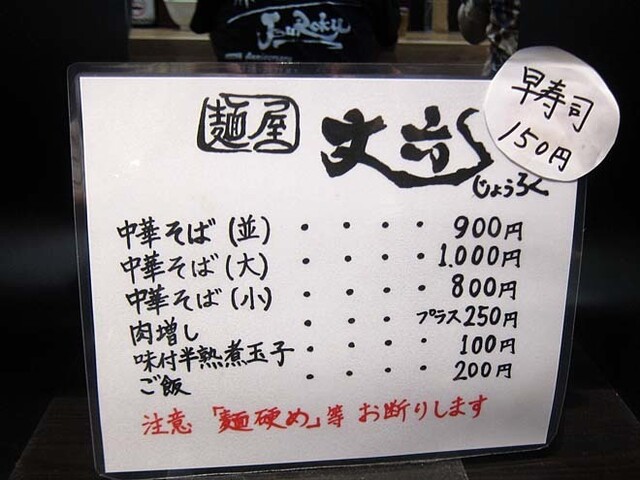 JouRoku
早寿司
150円
麺屋
丈六
じょうろく
中華そば(並)・・・・900円
中華そば(大)・・・・1.000円
中華そば(小)・・・・800円
肉増し・・・・プラス250円
味付半熟煮玉子・・・・100円
ご飯・・・・200円
注意「麺硬め」等お断りします